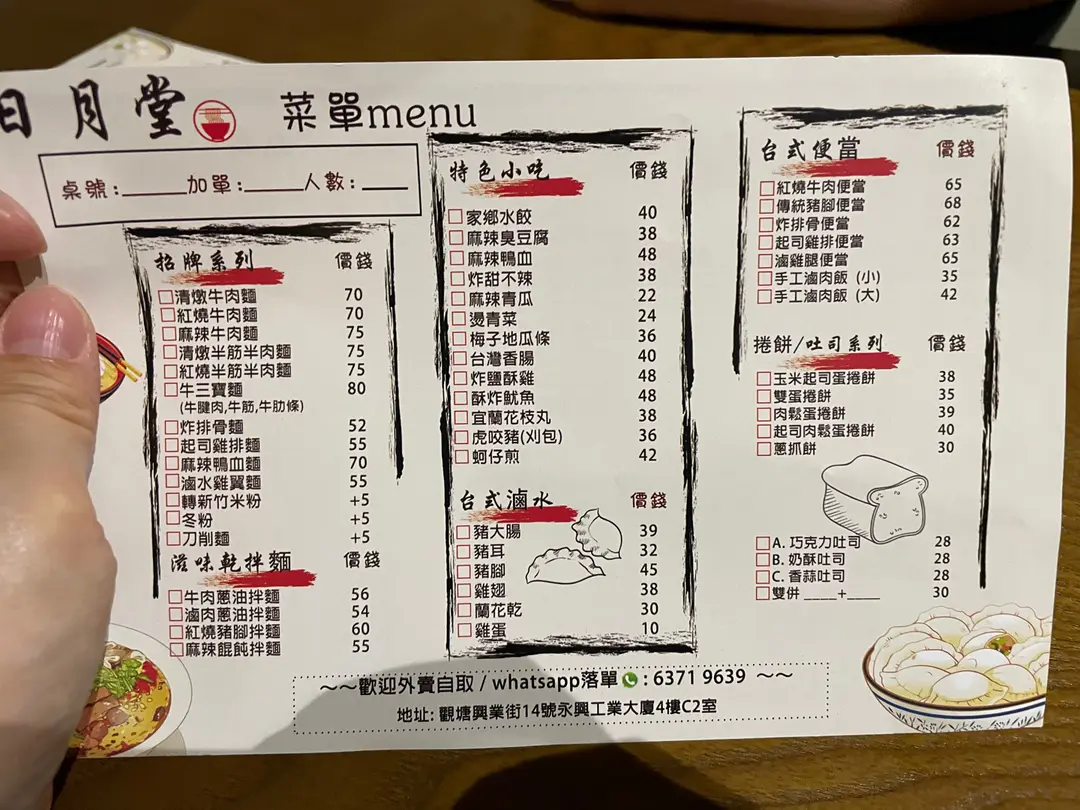 日月堂 菜單menu
桌號:_____加單:____人數:___
招牌系列 價錢
清燉牛肉麵 70
紅燒牛肉麵 70
麻辣牛肉麵 75
清燉半筋半肉麵 75
紅燒半筋半肉麵 75
牛三寶麵 80
(牛腱肉,牛筋,牛肋條)
炸排骨麵 52
起司雞排麵 55
麻辣鴨血麵 70
滷水雞翼麵 55
轉新竹米粉 +5
冬粉 +5
刀削麵 +5
滋味乾拌麵 價錢
牛肉蔥油拌麵 56
滷肉蔥油拌麵 54
紅燒豬腳拌麵 60
麻辣餛飩拌麵 55
特色小吃 價錢
家鄉水餃 40
麻辣臭豆腐 38
麻辣鴨血 48
炸甜不辣 38
麻辣青瓜 22
燙青菜 24
梅子地瓜條 36
台灣香腸 40
炸鹽酥雞 48
酥炸魷魚 48
宜蘭花枝丸 38
虎咬豬(刈包) 36
蚵仔煎 42
台式滷水 價錢
豬大腸 39
豬耳 32
豬腳 45
雞翅 38
蘭花乾 30
雞蛋 10
台式便當 價錢
紅燒牛肉便當 65
傳統豬腳便當 68
炸排骨便當 62
起司雞排便當 63
滷雞腿便當 65
手工滷肉飯 (小) 35
手工滷肉飯 (大) 42
捲餅/吐司系列 價錢
玉米起司蛋捲餅 38
雙蛋捲餅 35
肉鬆蛋捲餅 39
起司肉鬆蛋捲餅 40
蔥抓餅 30
A. 巧克力吐司 28
B. 奶酥吐司 28
C. 香蒜吐司 28
雙併 ____+____ 30
~~歡迎外賣自取 / whatsapp落單 : 6371 9639 ~~
地址: 觀塘興業街14號永興工業大廈4樓C2室